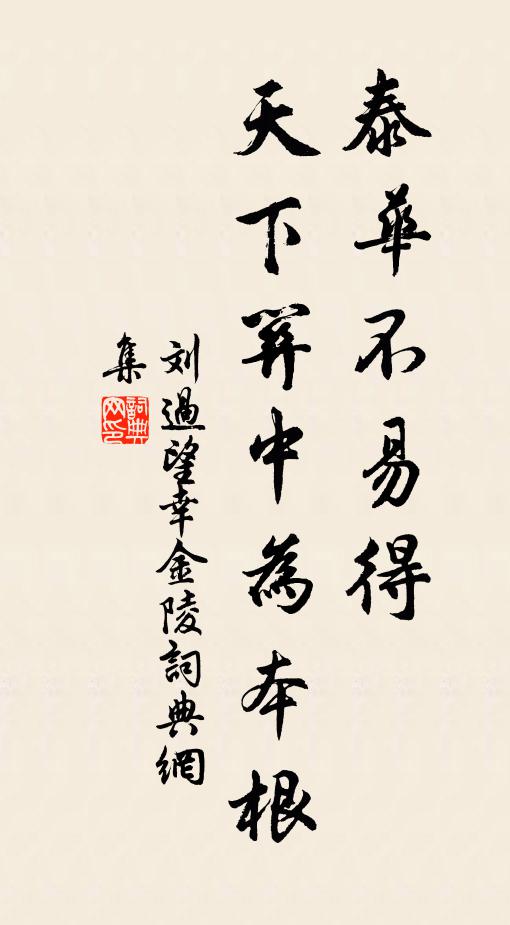 泰華不易得
天下關中為本根
刘過望幸金陵詞典網
集
詞典
网印